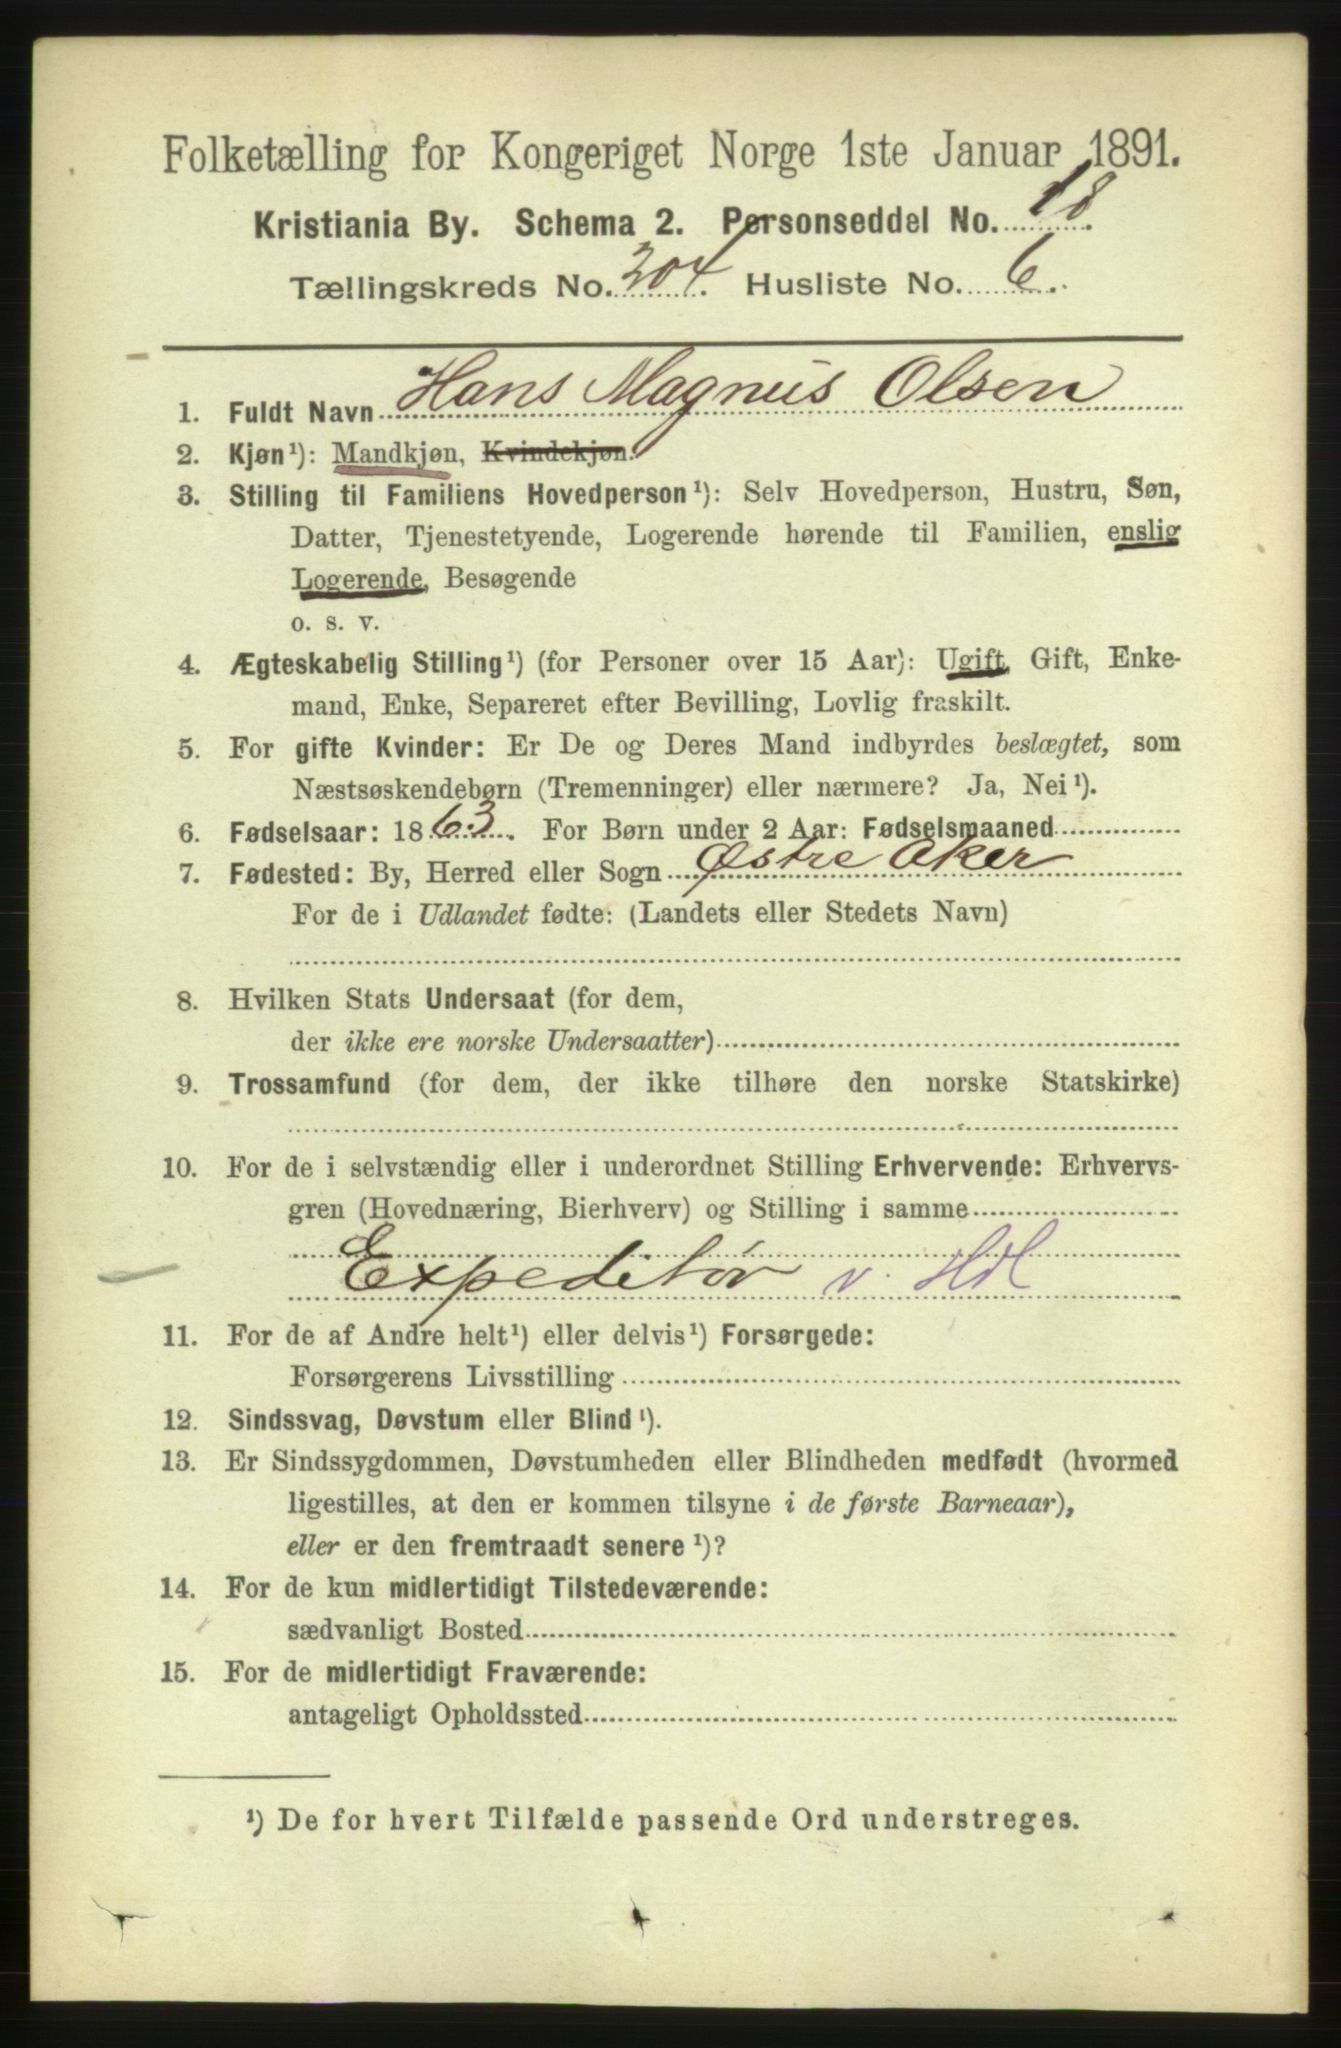 Folketælling for Kongeriget Norge 1ste Januar 1891.
Kristiania By. Schema 2. Personseddel No. 18.
Tællingskreds No. 204. Husliste No. 6.
1. Fuldt Navn Hans Magnus Olsen
2. Kjøn¹): Mandkjøn, Kvindekjøn.
3. Stilling til Familiens Hovedperson¹): Selv Hovedperson, Hustru, Søn,
Datter, Tjenestetyende, Logerende hørende til Familien, enslig
Logerende, Besøgende
o. s. v.
4. Ægteskabelig Stilling¹) (for Personer over 15 Aar): Ugift, Gift, Enke-
mand, Enke, Separeret efter Bevilling, Lovlig fraskilt.
5. For gifte Kvinder: Er De og Deres Mand indbyrdes beslægtet, som
Næstsøskendebørn (Tremenninger) eller nærmere? Ja, Nei¹).
6. Fødselsaar: 1863. For Børn under 2 Aar: Fødselsmaaned
7. Fødested: By, Herred eller Sogn Østre Aker
For de i Udlandet fødte: (Landets eller Stedets Navn)
8. Hvilken Stats Undersaat (for dem,
der ikke ere norske Undersaatter)
9. Trossamfund (for dem, der ikke tilhøre den norske Statskirke)
10. For de i selvstændig eller i underordnet Stilling Erhvervende: Erhvervs-
gren (Hovednæring, Bierhverv) og Stilling i samme
Expeditør v. Hdl
11. For de af Andre helt¹) eller delvis¹) Forsørgede:
Forsørgerens Livsstilling
12. Sindssvag, Døvstum eller Blind¹).
13. Er Sindssygdommen, Døvstumheden eller Blindheden medfødt (hvormed
ligestilles, at den er kommen tilsyne i de første Barneaar),
eller er den fremtraadt senere¹)?
14. For de kun midlertidigt Tilstedeværende:
sædvanligt Bosted
15. For de midlertidigt Fraværende:
antageligt Opholdssted
¹) De for hvert Tilfælde passende Ord understreges.